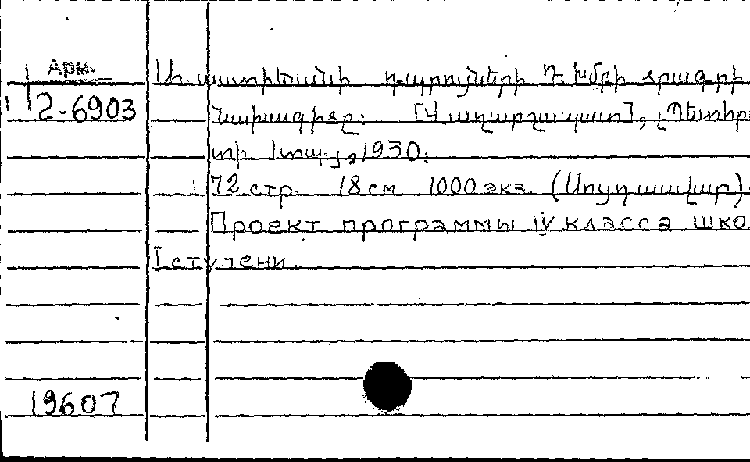 Арм.
2-6903
Ա. աստիճանի դպրոցների Դ խմբի ծրագրի
Նախագիծը: [Վաղարշապատ], Պետհր
տպ., 1930.
72 стр. 18 см 1000 экз.
Проект программы IV класса шко
I ступени.
19607